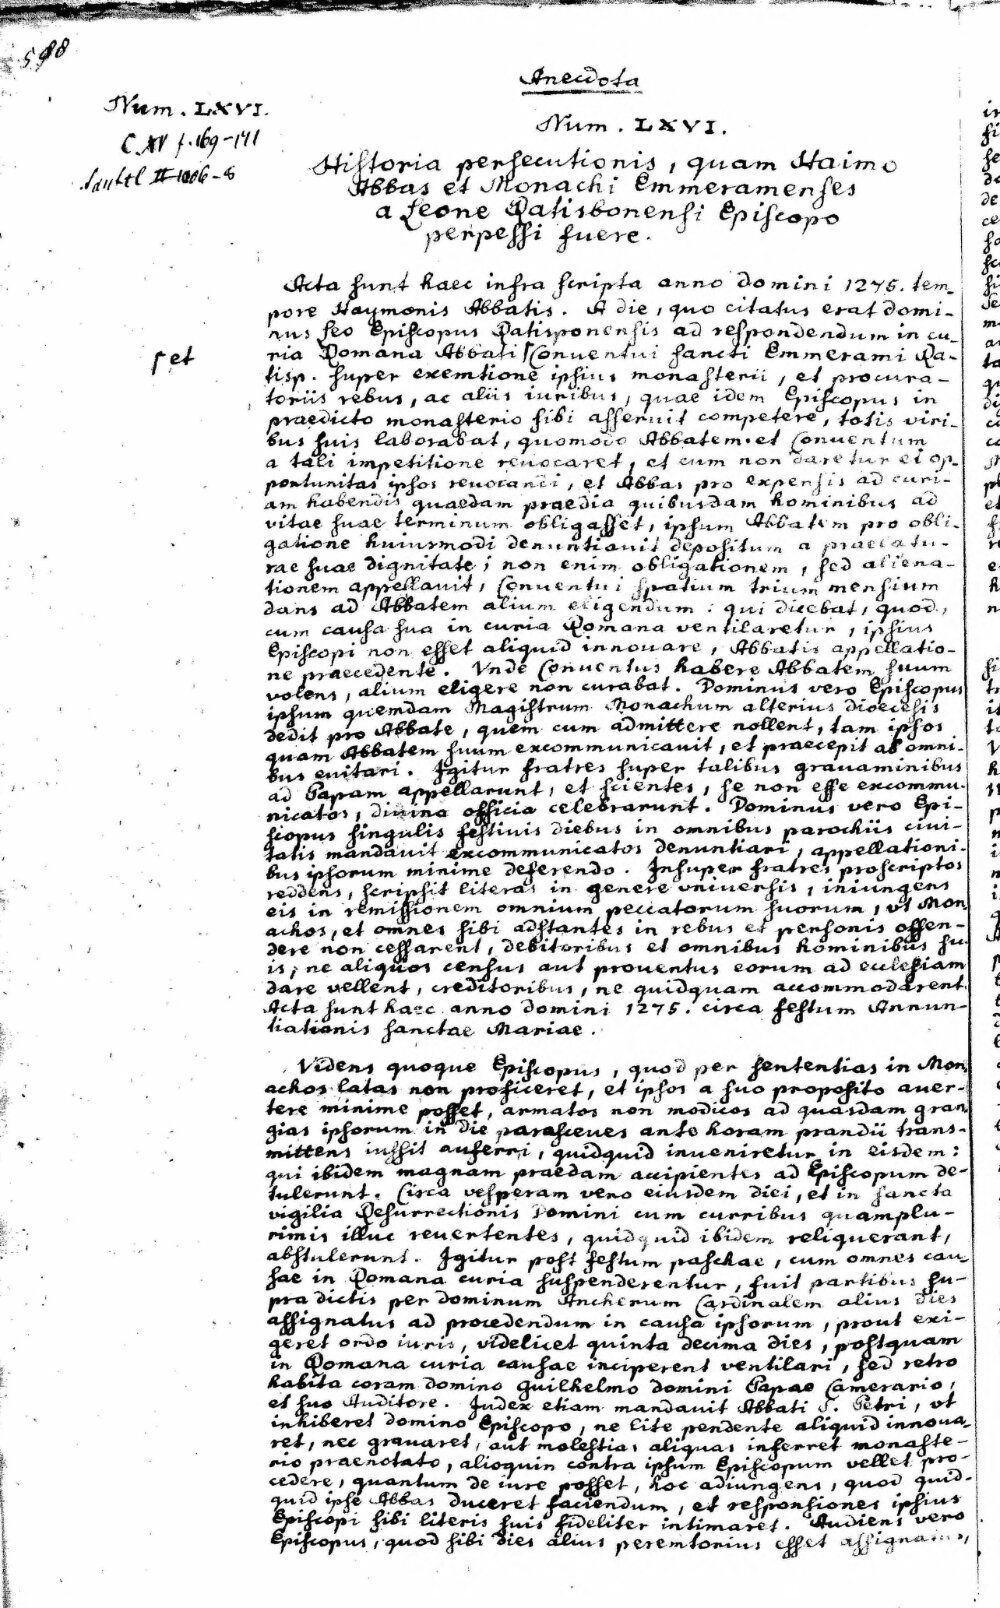 598
Anecdota
Num. LXVI.
Num. LXVI.
Historia persecutionis, quam Haimo
Abbas et Monachi Emmeramenses
a Leone Ratisbonensi Episcopo
perpessi fuere.
Acta sunt haec infra scripta anno domini 1275. tem-
pore Haymonis Abbatis. A die, quo citatus erat domi-
nus Leo Episcopus Ratisponensis ad respondendum in cu-
ria Romana Abbati Conventui sancti Emmerami Ra-
et
tisp. super exemtione ipsius monasterii, et procura-
toriis rebus, ac aliis iuribus, quae idem Episcopus in
praedicto monasterio sibi asseruit competere, totis viri-
bus suis laborabat, quomodo Abbatem et Conventum
a tali impetitione revocaret, et cum non daretur ei op-
portunitas ipsos reuocandi, et Abbas pro expensis ad curi-
am habendis quaedam praedia quibusdam hominibus ad
vitae suae terminum obligasset, ipsum Abbatem pro obli-
gatione huiusmodi denuntiauit depositum a praelatu-
rae suae dignitate; non enim obligationem, sed aliena-
tionem appellauit, Conuentui spatium trium mensium
dans ad Abbatem alium eligendum: qui dicebat, quod,
cum causa sua in curia Romana ventilaretur, ipsius
Episcopi non esset aliquid innouare, Abbatis appellatio-
ne praecedente. Vnde Conuentus habere Abbatem suum
volens, alium eligere non curabat. Dominus vero Episcopus
ipsum quemdam Magistrum Monachum alterius dioecesis
dedit pro Abbate, quem cum admittere nollent, tam ipsos
quam Abbatem suum excommunicauit, et praecepit ab omni-
bus euitari. Igitur fratres super talibus grauaminibus
ad Papam appellarunt, et scientes, se non esse excommu-
nicatos, diuina officia celebrarunt. Dominus vero Epi-
scopus singulis festiuis diebus in omnibus parochiis ciui-
tatis mandauit excommunicatos denuntiari, appellationi-
bus ipsorum minime deferendo. Insuper fratres proscriptos
reddens, scripsit literas in genere vniuersis, iniungens
eis in remissionem omnium peccatorum suorum, vt Mon-
achos, et omnes sibi adstantes in rebus et personis offen-
dere non cessarent, debitoribus et omnibus hominibus su-
is, ne aliquos census aut prouentus eorum ad ecclesiam
dare vellent, creditoribus, ne quidquam accommodarent.
Acta sunt haec anno domini 1275. circa festum Annun-
tiationis sanctae Mariae.
Videns quoque Episcopus, quod per sententias in Mon-
achos latas non proficeret, et ipsos a suo proposito auer-
tere minime posset, armatos non modicos ad quasdam gran-
gias ipsorum in die parasceues ante horam prandii trans-
mittens iussit auferri, quidquid inueniretur in eisdem:
qui ibidem magnam praedam accipientes ad Episcopum de-
tulerunt. Circa vesperam vero eiusdem diei, et in sancta
vigilia Resurrectionis Domini cum curribus quamplu-
rimis illuc reuertentes, quidquid ibidem reliquerant,
abstulerunt. Igitur post festum paschae, cum omnes cau-
sae in Romana curia suspenderentur, fuit partibus su-
pradictis per dominum Ancherum Cardinalem alius dies
assignatus ad procedendum in causa ipsorum, prout exi-
geret ordo iuris, videlicet quinta decima dies, postquam
in Romana curia causae inciperent ventilari, sed retro
habita coram domino Guilhelmo domini Papae Camerario,
et suo Auditore. Iudex etiam mandauit Abbati S. Petri, vt
inhiberet domino Episcopo, ne lite pendente aliquid innoua-
ret, nec grauaret, aut molestias aliquas inferret monaste-
rio praenotato, alioquin contra ipsum Episcopum vellet pro-
cedere, quantum de iure posset, hoc adiungens, quod quid-
quid ipse Abbas duceret faciendum, et responsiones ipsius
Episcopi sibi literis suis fideliter intimaret. Audiens vero
Episcopus, quod sibi dies alius peremtorius esset assignatus,